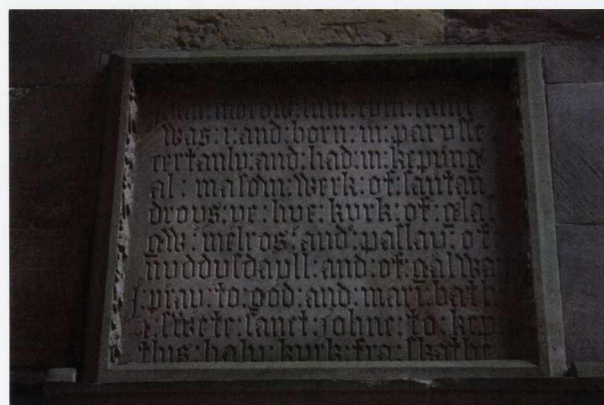 john: morow: sum: tym: callit
was: i: and: born: in: parysse
certanly: and: had: in: kepyng
al: mason: werk: of: santan
droys: ye: hye: kyrk: of: glas
gw: melros: and: paslay: of
nyddysdayll: and: of: galway
i pray: to: god: and: mari: bath
& swete: sanct: johne: to: kep
this: haly: kyrk: fra: skathe